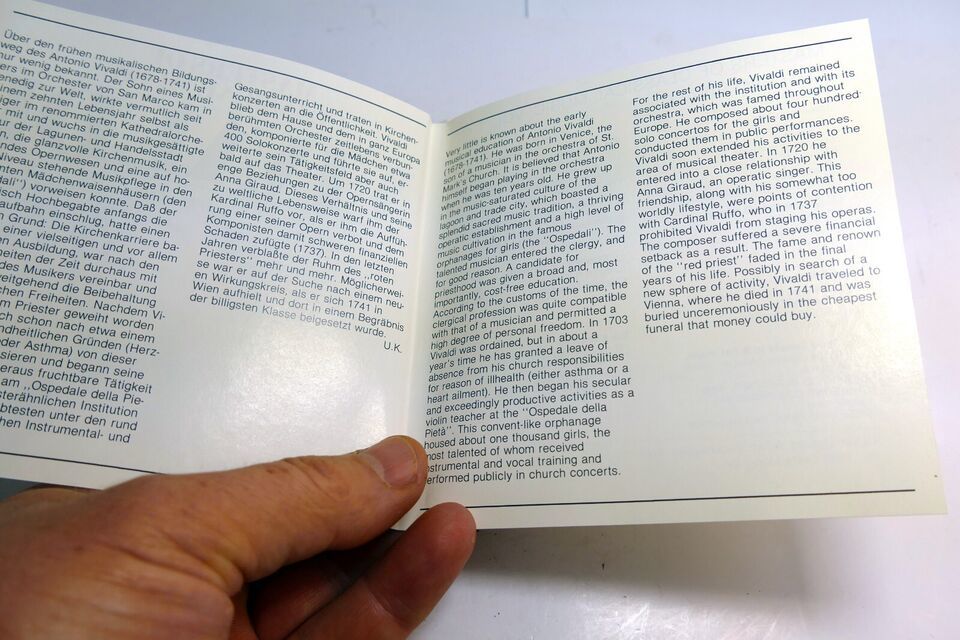 Über den frühen musikalischen Bildungs-
weg des Antonio Vivaldi (1678-1741) ist
nur wenig bekannt. Der Sohn eines Musi-
ers im Orchester von San Marco kam in
enedig zur Welt, wirkte vermutlich seit
inem zehnten Lebensjahr selbst als
iger im renommierten Kathedralorche-
mit und wuchs in die musikgesättigte
r der Lagunen- und Handelsstadt
n, die glanzvolle Kirchenmusik, ein
ndes Opernwesen und eine auf ho-
Niveau stehende Musikpflege in den
nten Mädchenwaisenhäusern (den
dali") vorweisen konnte. Daß der
isch Hochbegabte anfangs die
aufbahn einschlug, hatte einen
n Grund: Die Kirchenkarriere ba-
einer vielseitigen und vor allem
en Ausbildung, war nach den
eiten der Zeit durchaus mit
des Musikers vereinbar und
eitgehend die Beibehaltung
chen Freiheiten. Nachdem Vi-
m Priester geweiht worden
ch schon nach etwa einem
ndheitlichen Gründen (Herz-
der Asthma) von dieser
sieren und begann seine
eraus fruchtbare Tätigkeit
am ,,Ospedale della Pie-
sterähnlichen Institution
btesten unter den rund
chen Instrumental- und
Gesangsunterricht und traten in Kirchen-
konzerten an die Öffentlichkeit. Vivaldi
blieb dem Hause und dem ganz Europa
berühmten Orchester zeitlebens verbun-
den, komponierte für die Mädchen etwa
400 Solokonzerte und führte sie auf, er-
weiterte sein Tätigkeitsfeld aber auch
bald auf das Theater. Um 1720 trat er in
enge Beziehungen zu der Opernsängerin
Anna Giraud. Dieses Verhältnis und seine
zu weltliche Lebensweise warf ihm der
Kardinal Ruffo vor, als er ihm die Auffüh-
rung einer seiner Opern verbot und dem
Komponisten damit schweren finanziellen
Schaden zufügte (1737). In den letzten
Jahren verblaßte der Ruhm des ,,roten
Priesters" mehr und mehr. Möglicherwei-
se war er auf der Suche nach einem neu-
en Wirkungskreis, als er sich 1741 in
Wien aufhielt und dort in einem Begräbnis
der billigsten Klasse beigesetzt wurde.
U.K.
Very little is known about the early
musical education of Antonio Vivaldi
(1678-1741). He was born in Venice, the
son of a musician in the orchestra of St.
Mark's Church. It is believed that Antonio
himself began playing in the orchestra
when he was ten years old. He grew up
in the music-saturated culture of the
lagoon and trade city, which boasted a
splendid sacred music tradition, a thriving
operatic establishment and a high level of
music cultivation in the famous
orphanages for girls (the "Ospedali"). The
talented musician entered the clergy, and
for good reason. A candidate for
priesthood was given a broad and, most
importantly, cost-free education.
According to the customs of the time, the
clergical profession was quite compatible
with that of a musician and permitted a
high degree of personal freedom. In 1703
Vivaldi was ordained, but in about a
year's time he has granted a leave of
absence from his church responsibilities
for reason of illhealth (either asthma or a
heart ailment). He then began his secular
and exceedingly productive activities as a
violin teacher at the "Ospedale della
Pietà". This convent-like orphanage
housed about one thousand girls, the
most talented of whom received
instrumental and vocal training and
erformed publicly in church concerts.
For the rest of his life, Vivaldi remained
associated with the institution and with its
orchestra, which was famed throughout
Europe. He composed about four hundred
solo concertos for the girls and
conducted them in public performances.
Vivaldi soon extended his activities to the
area of musical theater. In 1720 he
entered into a close relationship with
Anna Giraud, an operatic singer. This
friendship, along with his somewhat too
worldly lifestyle, were points of contention
with Cardinal Ruffo, who in 1737
prohibited Vivaldi from staging his operas.
The composer suffered a severe financial
setback as a result. The fame and renown
of the "red priest" faded in the final
years of his life. Possibly in search of a
new sphere of activity, Vivaldi traveled to
Vienna, where he died in 1741 and was
buried unceremoniously in the cheapest
funeral that money could buy.